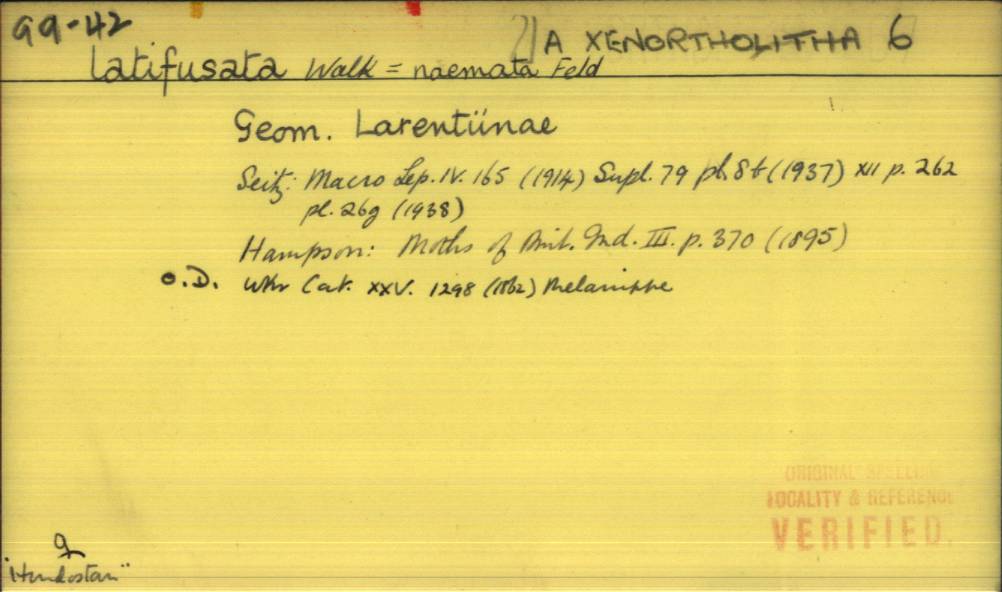 99-42
A XENORTHOLITHA 6
latifusata Walk = naemata Feld
Geom. Larentiinae
Seitz: Macro Lep. IV. 165 (1914) Supl. 79 pl. 8 f (1937) XII p. 262
pl. 26g (1938)
Hampson: Moths of Brit. Ind. III. p. 370 (1895)
O.D. Wkr Cat. XXV. 1298 (1862) Melanippe
ORIGINAL SPELLING
LOCALITY & REFERENCE
VERIFIED.
"Hindostan"